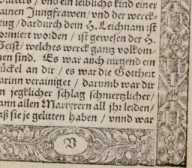 vnd ein leibliche kind einer
reinen Junckfrawen / vnd der werck-
zeug / dardurch dem H. Leichnam ist
worden / ist gewesen der H.
Geist / welches werck gang volkom-
en sind. Es war auch nirgend ein
tückel an dir / es war die Gottheit
darinn veraintiget / darumb war dir
in jegklicher schlag schmertzlicher /
dann allen Martyrern all jhr leiden /
daß sie je gelitten haben / vnnd war
B